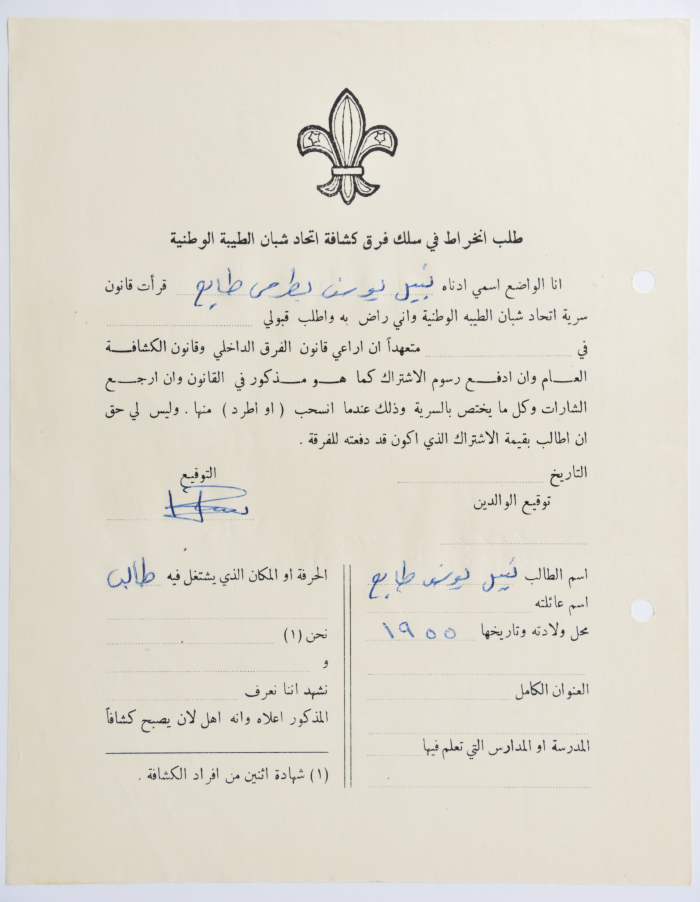 طلب انخراط في سلك فرق كشافة اتحاد شبان الطيبة الوطنية
انا الواضع اسمي ادناه نبيل يوسف بطرس طايع قرأت قانون
سرية اتحاد شبان الطيبه الوطنية واني راض به واطلب قبولي
في متعهداً ان اراعي قانون الفرق الداخلي وقانون الكشافة
العام وان ادفع رسوم الاشتراك كما هو مذكور في القانون وان ارجع
الشارات وكل ما يختص بالسرية وذلك عندما انسحب ( او اطرد ) منها . وليس لي حق
ان اطالب بقيمة الاشتراك الذي اكون قد دفعته للفرقة .
التاريخ
التوقيع
توقيع الوالدين
اسم الطالب نبيل يوسف طايع
اسم عائلته
محل ولادته وتاريخها ١٩٥٥
العنوان الكامل
المدرسة او المدارس التي تعلم فيها
الحرفة او المكان الذي يشتغل فيه طالب
نحن (١)
و
نشهد اننا نعرف
المذكور اعلاه وانه اهل لان يصبح كشافاً
(١) شهادة اثنين من افراد الكشافة .